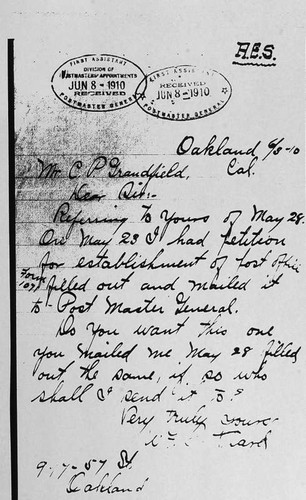 A.E.S.
FIRST ASSISTANT
DIVISION OF
POSTMASTERS' APPOINTMENTS
JUN 8-1910
RECEIVED
POSTMASTER GENERAL
FIRST ASSISTANT
RECEIVED
JUN 8-1910
POSTMASTER GENERAL
Oakland 6/3-10
Cal.
Mr. C P Grandfield,
Dear Sir:-
Referring to yours of May 28.
On May 23 I had petition
for establishment of post office
Form 1097 filled out and mailed it
to Post Master General.
Do you want this one
you mailed me May 28 filled
out the same, if so who
shall I send it to?
Very Truly yours
917-57 St.
Oakland